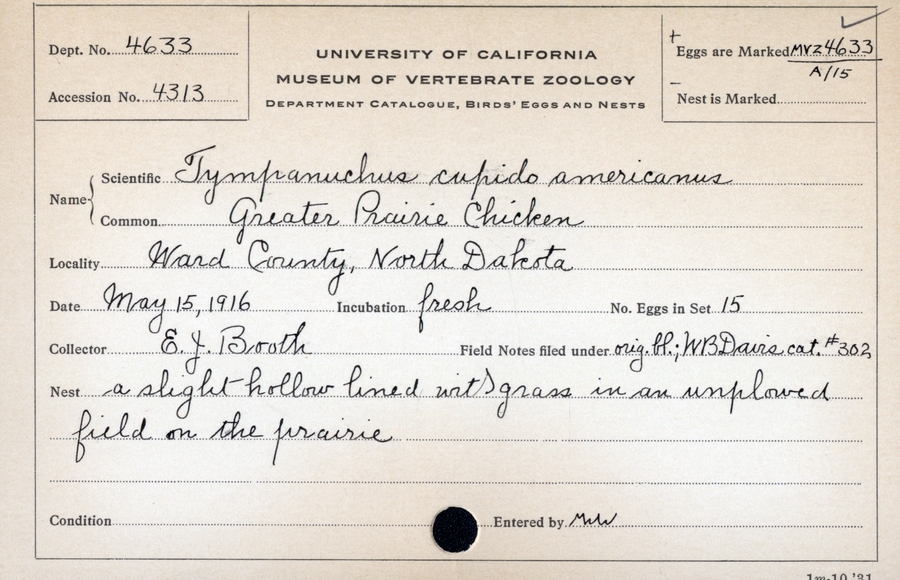 Dept. No. 4633
Accession No. 4313
UNIVERSITY OF CALIFORNIA
MUSEUM OF VERTEBRATE ZOOLOGY
DEPARTMENT CATALOGUE, BIRDS' EGGS AND NESTS
+
Eggs are Marked MVZ4633
A/15
–
Nest is Marked
Name
Scientific Tympanuchus cupido americanus
Common Greater Prairie Chicken
Locality Ward County, North Dakota
Date May 15, 1916 Incubation fresh No. Eggs in Set 15
Collector E. J. Booth Field Notes filed under orig. bl.; WBDavis cat. #302
Nest a slight hollow lined with grass in an unplowed
field on the prairie
Condition Entered by
1m-10,'31